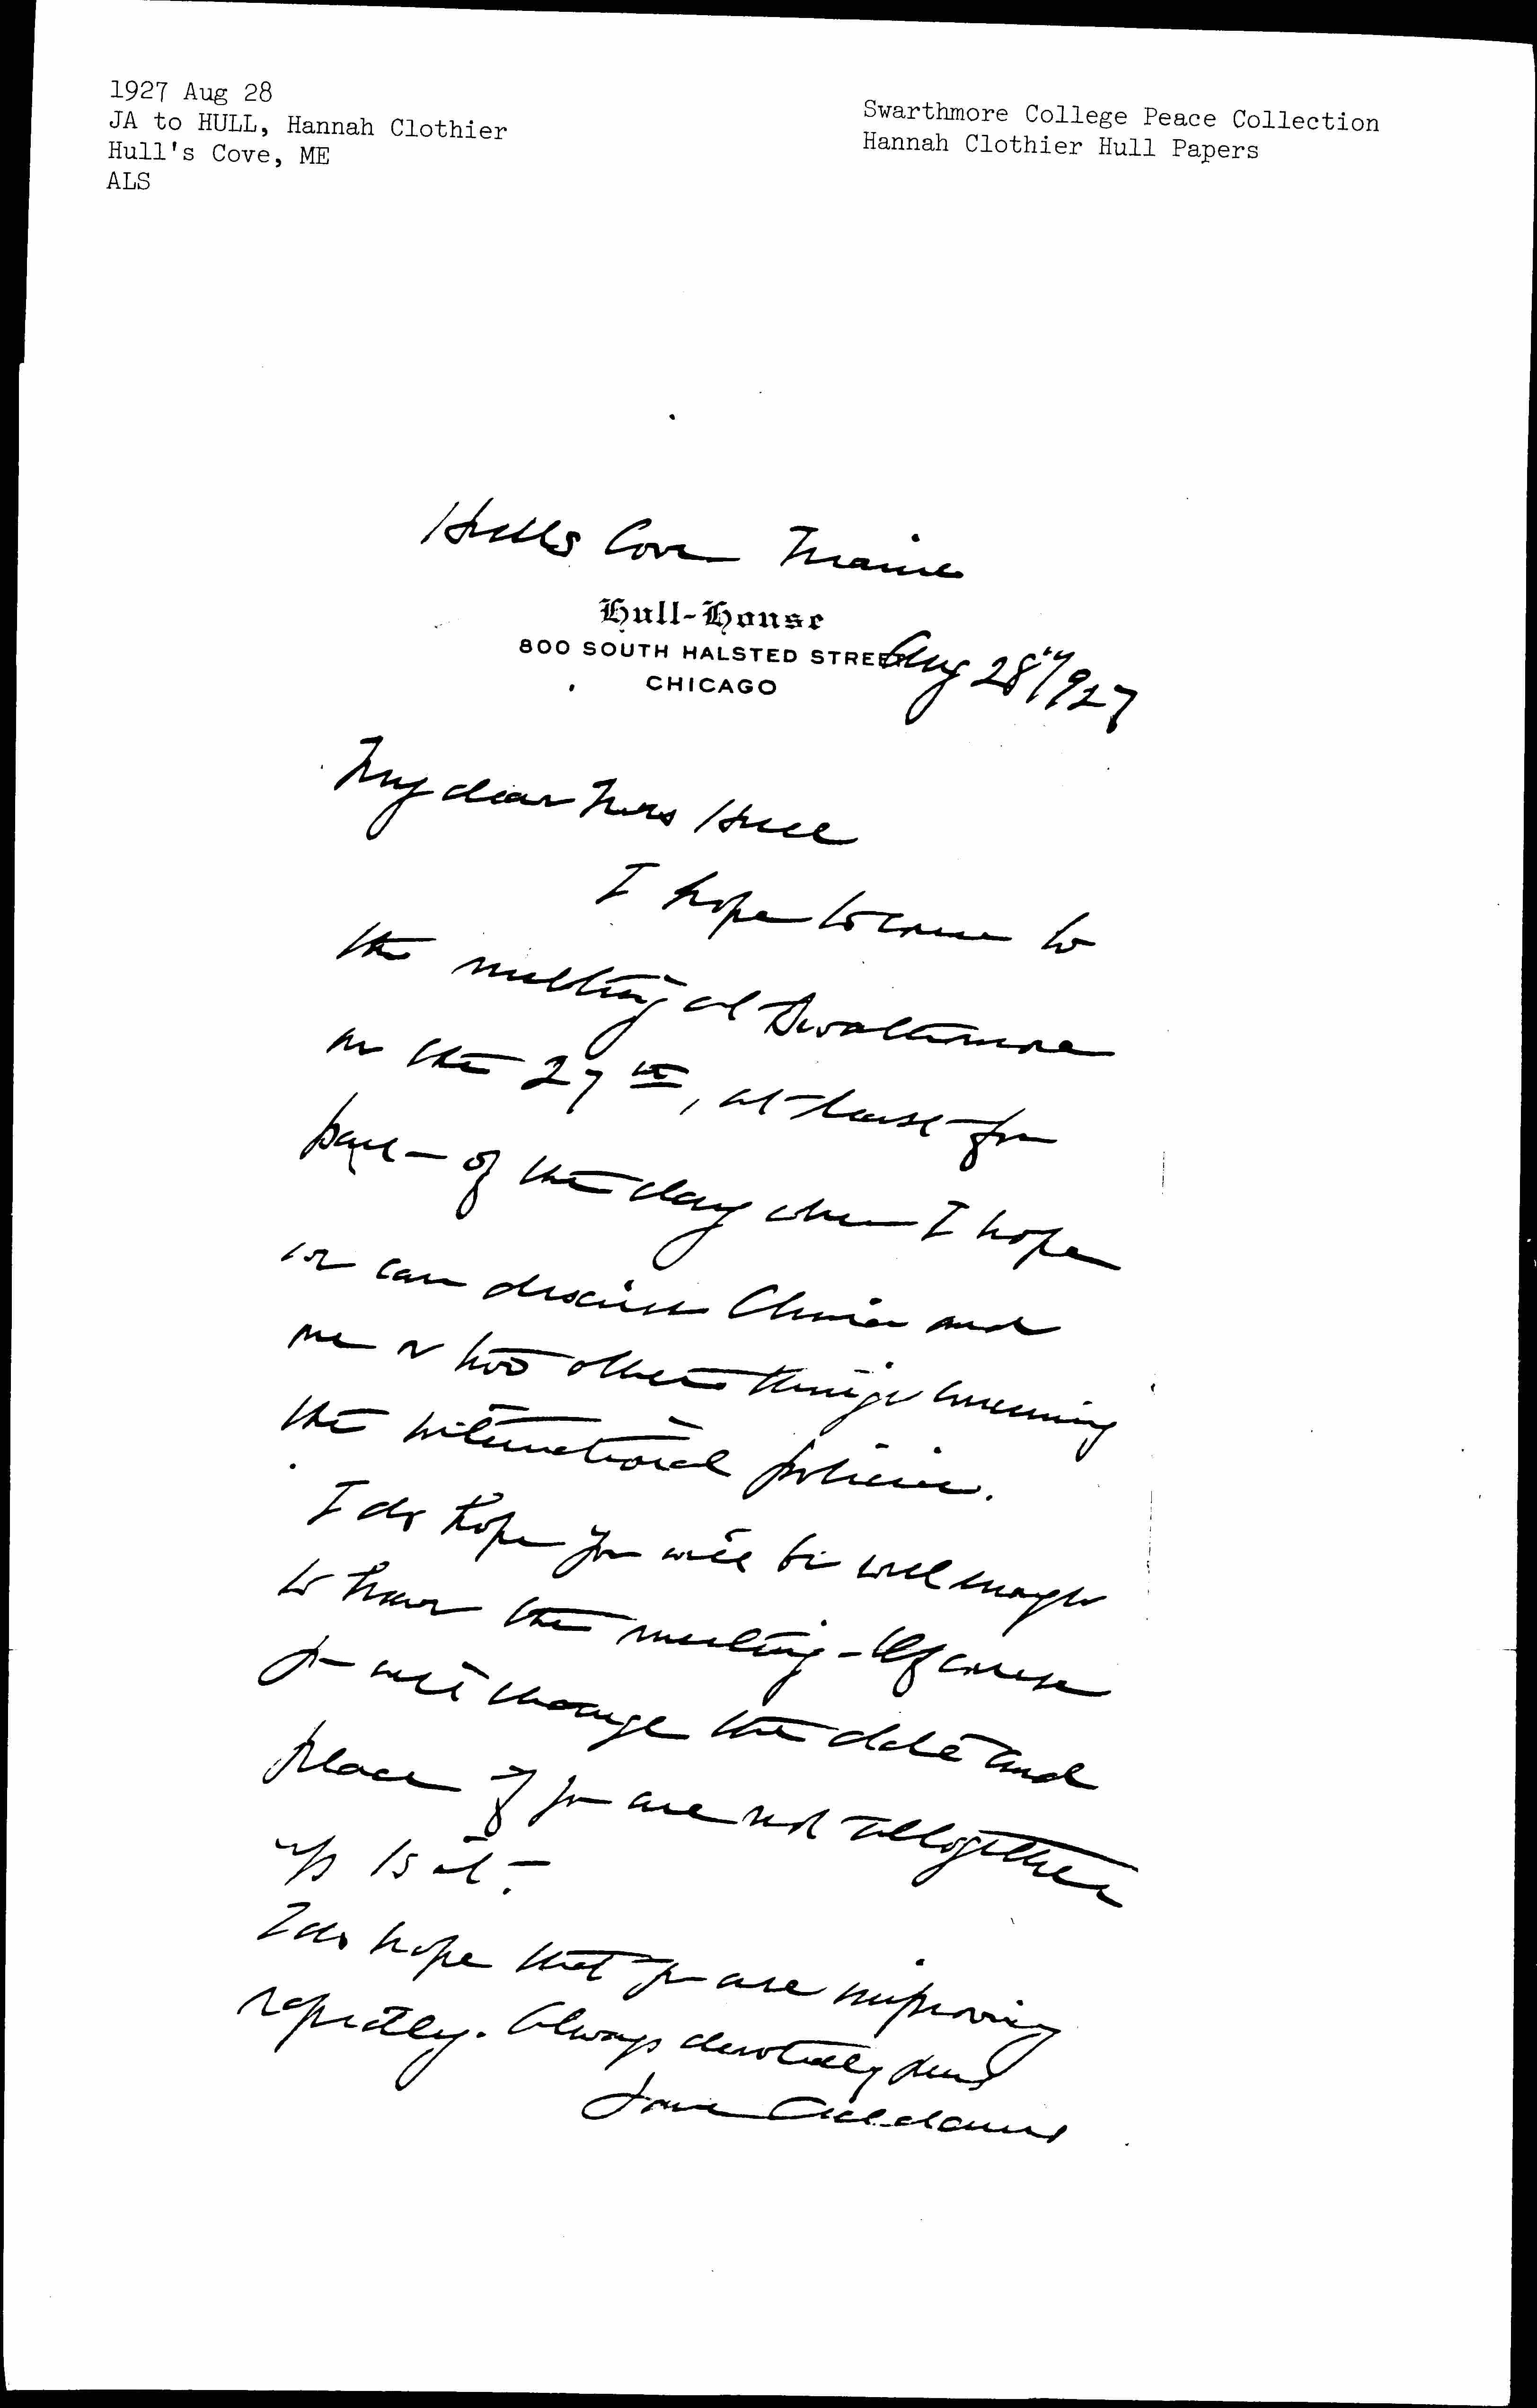 1927 Aug 28
JA to HULL, Hannah Clothier
Hull's Cove, ME
ALS
Swarthmore College Peace Collection
Hannah Clothier Hull Papers
Hulls Cove Maine
Hull-House
800 SOUTH HALSTED STREET
CHICAGO
Aug 28" 1927
My dear Mrs Hull
I hope to come to
the meeting at Swarthmore
on the 27th, at least for
part of the day when I hope
we can discuss China and
one or two other things concerning
the international policies.
I do hope you will be well enough
to have the meeting - Of course
you will change the date and
place if you are not altogether
up to it -
I do hope that you are improving
rapidly. Always devotedly yours
Jane Addams